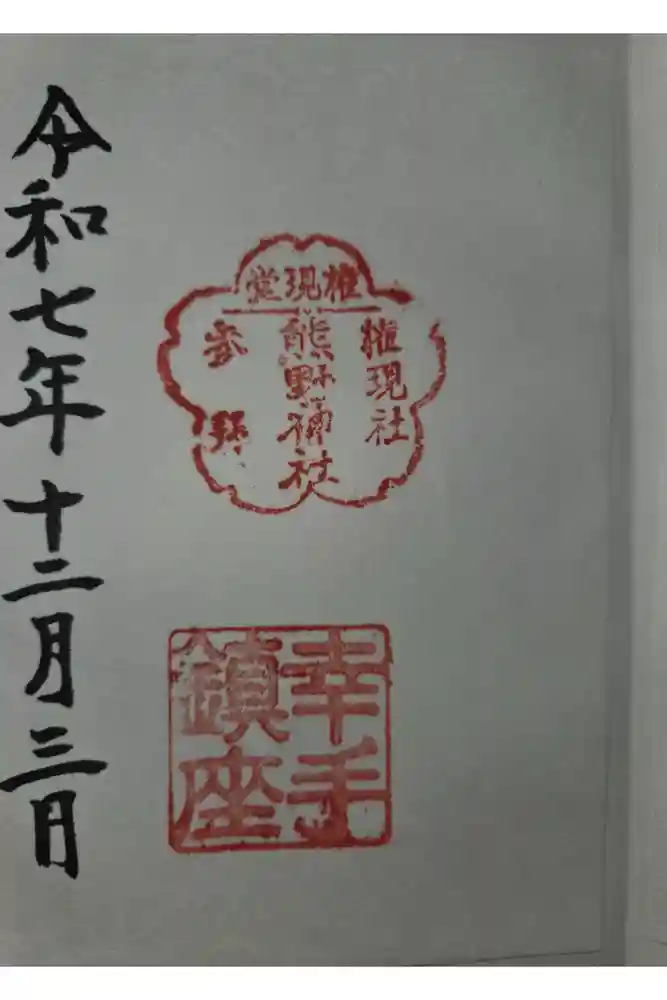 権現堂
権現社
熊野神社
参拝
幸手
鎮座
令和七年十二月三日